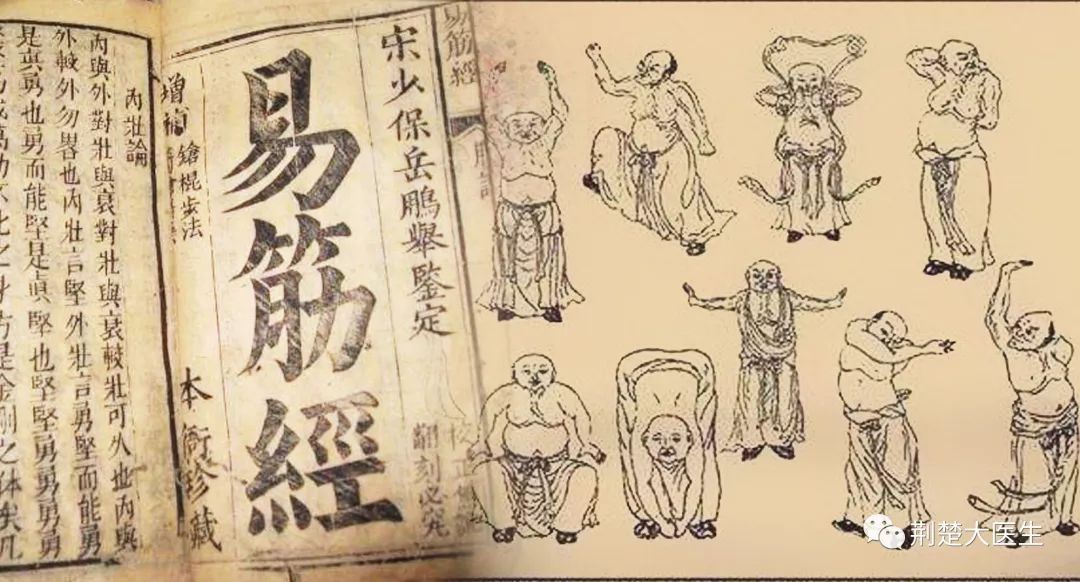 易筋經
宋少保岳鵬舉鑒定
翻刻必究
易筋經
增
鎗棍步法
本衙珍藏
內壯論
內與外對壯與衰對壯與衰較壯可久也內與
外較外勿畧也內壯言堅外壯言勇堅而能勇
是眞勇也勇而能堅是眞堅也堅堅勇勇勇勇
成萬劫不化之身方是金剛之体矣凡
荆楚大医生